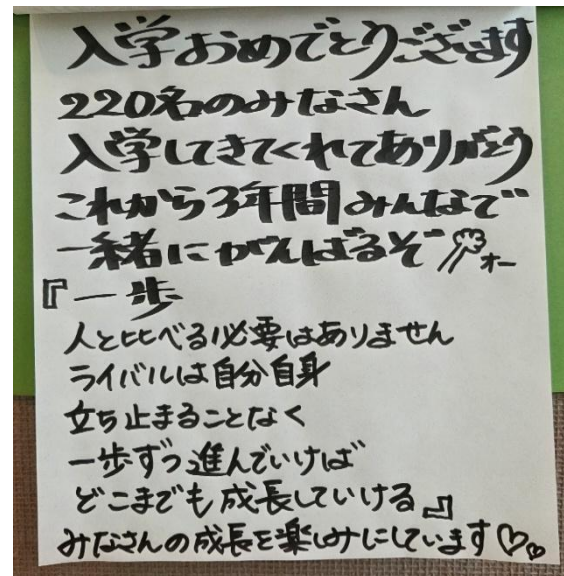 入学おめでとうございます
220名のみなさん
入学してきてくれてありがとう
これから3年間みんなで
一緒にがんばるぞ オー
『一歩
人と比べる必要はありません
ライバルは自分自身
立ち止まることなく
一歩ずつ進んでいけば
どこまでも成長していける』
みなさんの成長を楽しみにしています♡♡